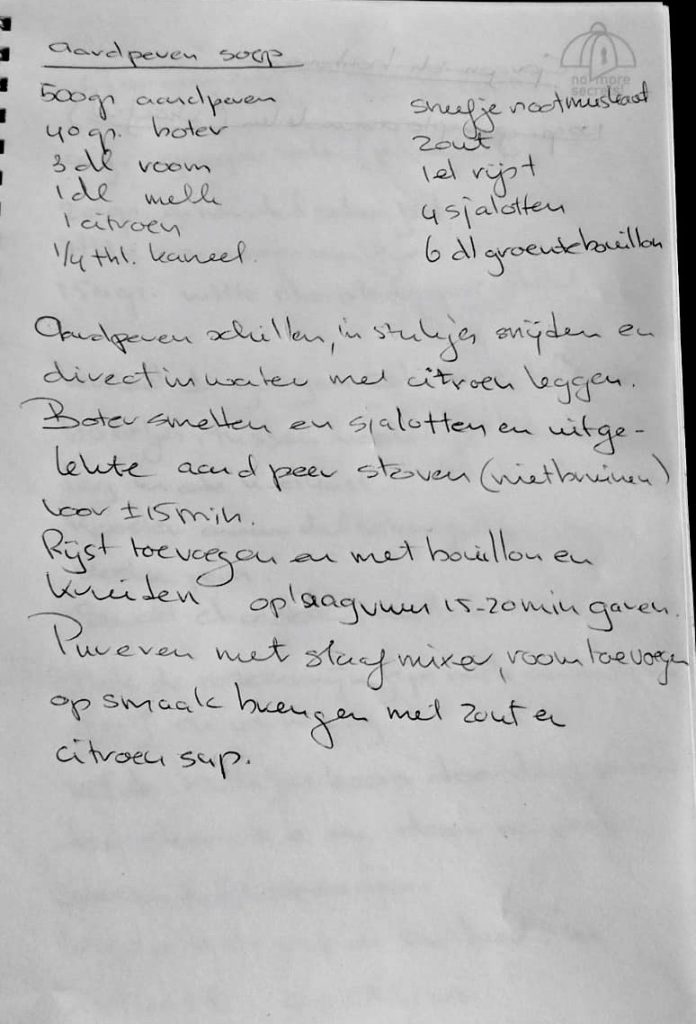 Aardperen soep
500gr aardperen
40 gr. boter
3 dl room
1 dl melk
1 citroen
1/4 thl. kaneel.
snufje nootmuskaat
zout
1 el rijst
4 sjalotten
6 dl groentebouillon
Aardperen schillen, in stukjes snijden en
direct in water met citroen leggen.
Boter smelten en sjalotten en uitge-
lekte aardpeer stoven (niet bruinen)
voor ±15min.
Rijst toevoegen en met bouillon en
kruiden op laag vuur 15-20min garen.
Pureren met staafmixer, room toevoegen
op smaak brengen met zout en
citroen sap.
no more
secrets!